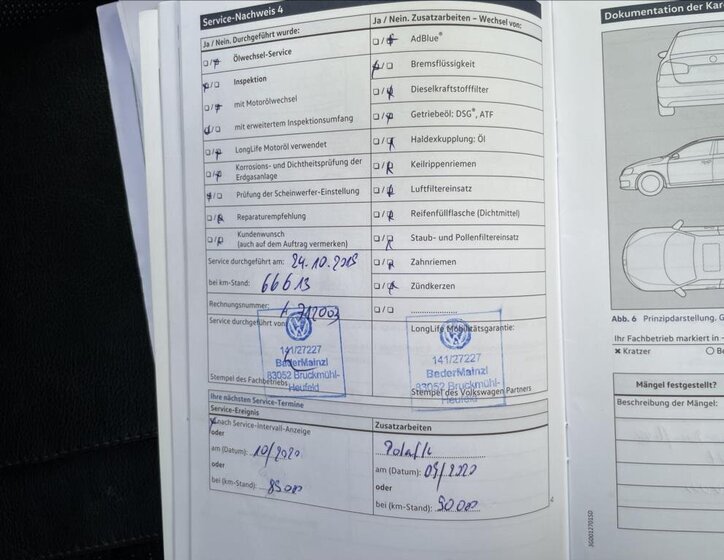 Service-Nachweis 4
Ja / Nein. Durchgeführt wurde:
Ölwechsel-Service
Inspektion
mit Motorölwechsel
mit erweitertem Inspektionsumfang
LongLife Motoröl verwendet
Korrosions- und Dichtheitsprüfung der
Erdgasanlage
Prüfung der Scheinwerfer-Einstellung
Reparaturempfehlung
Kundenwunsch
(auch auf dem Auftrag vermerken)
Service durchgeführt am: 24.10.2019
bei km-Stand: 66613
Rechnungsnummer:
Service durchgeführt von:
141/27227
BaderMainzl
83052 Bruckmühl-
Heufeld
Stempel des Fachbetriebs
Ja / Nein. Zusatzarbeiten – Wechsel von:
AdBlue®
Bremsflüssigkeit
Dieselkraftstofffilter
Getriebeöl: DSG®, ATF
Haldexkupplung: Öl
Keilrippenriemen
Luftfiltereinsatz
Reifenfüllflasche (Dichtmittel)
Staub- und Pollenfiltereinsatz
Zahnriemen
Zündkerzen
LongLife Mobilitätsgarantie:
141/27227
BaderMainzl
83052 Bruckmühl-
Heufeld
Stempel des Volkswagen Partners
Ihre nächsten Service-Termine
Service-Ereignis
nach Service-Intervall-Anzeige
oder
am (Datum): 10/2020
oder
bei (km-Stand):
Zusatzarbeiten
am (Datum): 09/2020
oder
bei (km-Stand): 90000
Dokumentation der Kar
Abb. 6 Prinzipdarstellung. G
Ihr Fachbetrieb markiert in
Kratzer
Mängel festgestellt?
Beschreibung der Mängel: